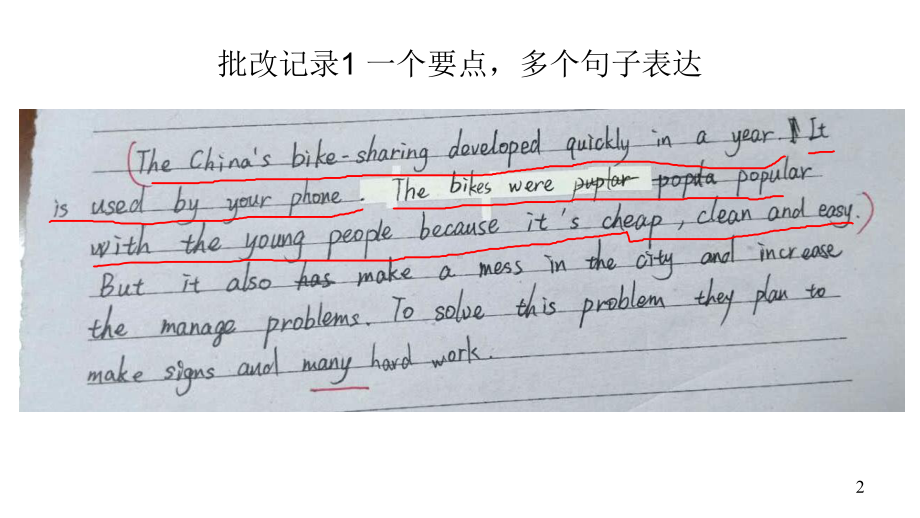 批改记录1 一个要点，多个句子表达
The China's bike-sharing developed quickly in a year. It
is used by your phone. The bikes were puplar popula popular
with the young people because it's cheap, clean and easy.
But it also has make a mess in the city and increase
the manage problems. To solve this problem they plan to
make signs and many hard work.
2